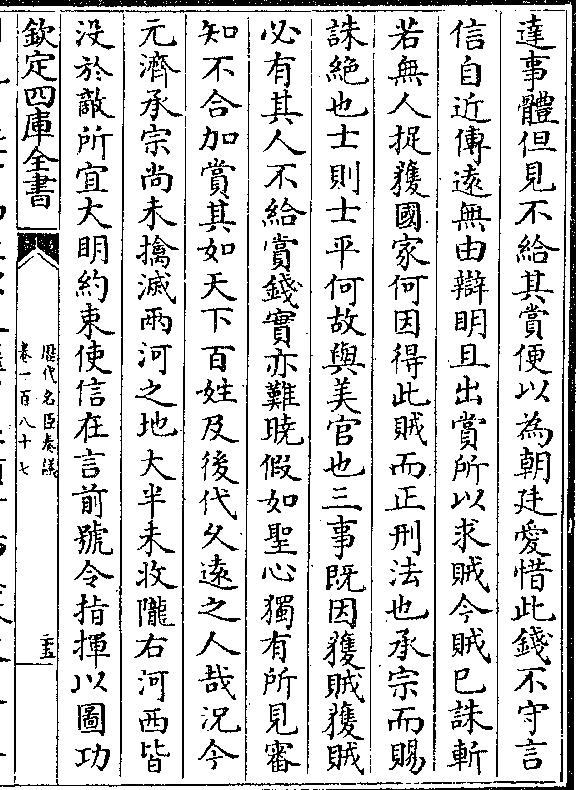 達事體但見不給其賞便以為朝廷愛惜此錢不守言
信自近傳遠無由辯明且出賞所以求賊今賊已誅斬
若無人捉獲國家何因得此賊而正刑法也承宗而賜
誅絶也士則士平何故與美官也三事既因獲賊獲賊
必有其人不給賞錢實亦難曉假如聖心獨有所見審
知不合加賞其如天下百姓及後代久遠之人哉況今
元濟承宗尚未擒滅兩河之地大半未收隴右河西皆
没於敵所宜大明約束使信在言前號令指揮以圖功
欽定四庫全書
歷代名臣奏議
卷一百八十七